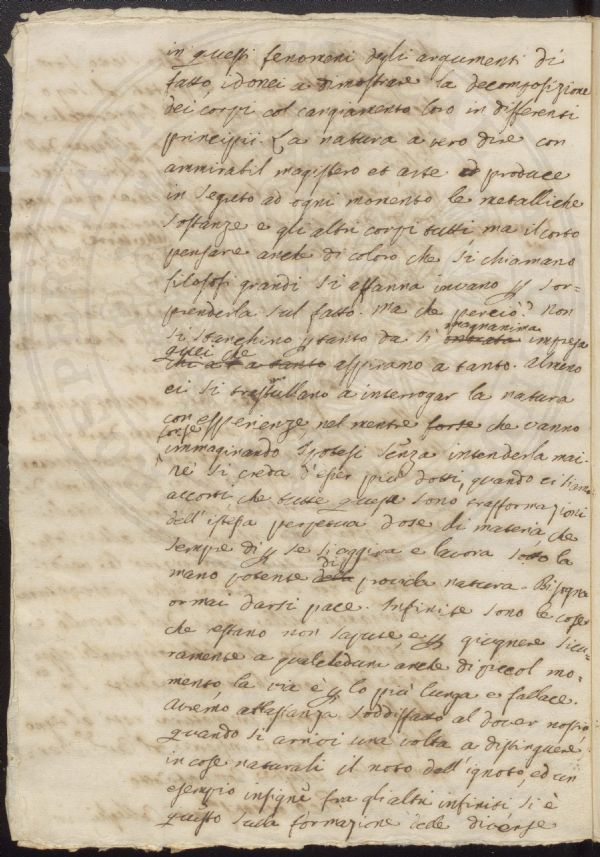 in questi fenomeni degli argumenti di
fatto idonei a dimostrare la decomposizione
dei corpi col cangiamento loro in differenti
principii. La natura a vero dire con
ammirabil magistero et arte produce
in segreto ad ogni momento le metalliche
sostanze e gli altri corpi tutti ma il corto
pensare anche di coloro che si chiamano
filosofi grandi si affanna invano p sor-
prenderla sul fatto. Ma che perciò? Non
si stanchino p tanto da sì magnanima impresa
quei che aspirano a tanto. Almeno
ci si trastullano a interrogar la natura
con esperienze, nel mentre che vanno
forse immaginando Ipotesi senza intenderla mai.
Nè si creda d'esser più dotti, quando ci siamo
accorti, che tutte queste sono trasformazioni
dell'istessa perpetua dose di materia, che
sempre di p se s'aggira e lavora sotto la
mano potente di provida natura. Bisogna
ormai darsi pace. Infinite sono le cose
che restano non sapute, e p giugnere sicu-
ramente a qualcheduna anche di piccol mo-
mento la via è p lo più lunga e fallace.
Avremo abbastanza soddisfatto al dover nostro
quando si arrivi una volta a distinguere
in cose naturali il noto dall'ignoto, ed un
esempio insigne fra gli altri infiniti si è
questo sulla formazione delle diverse